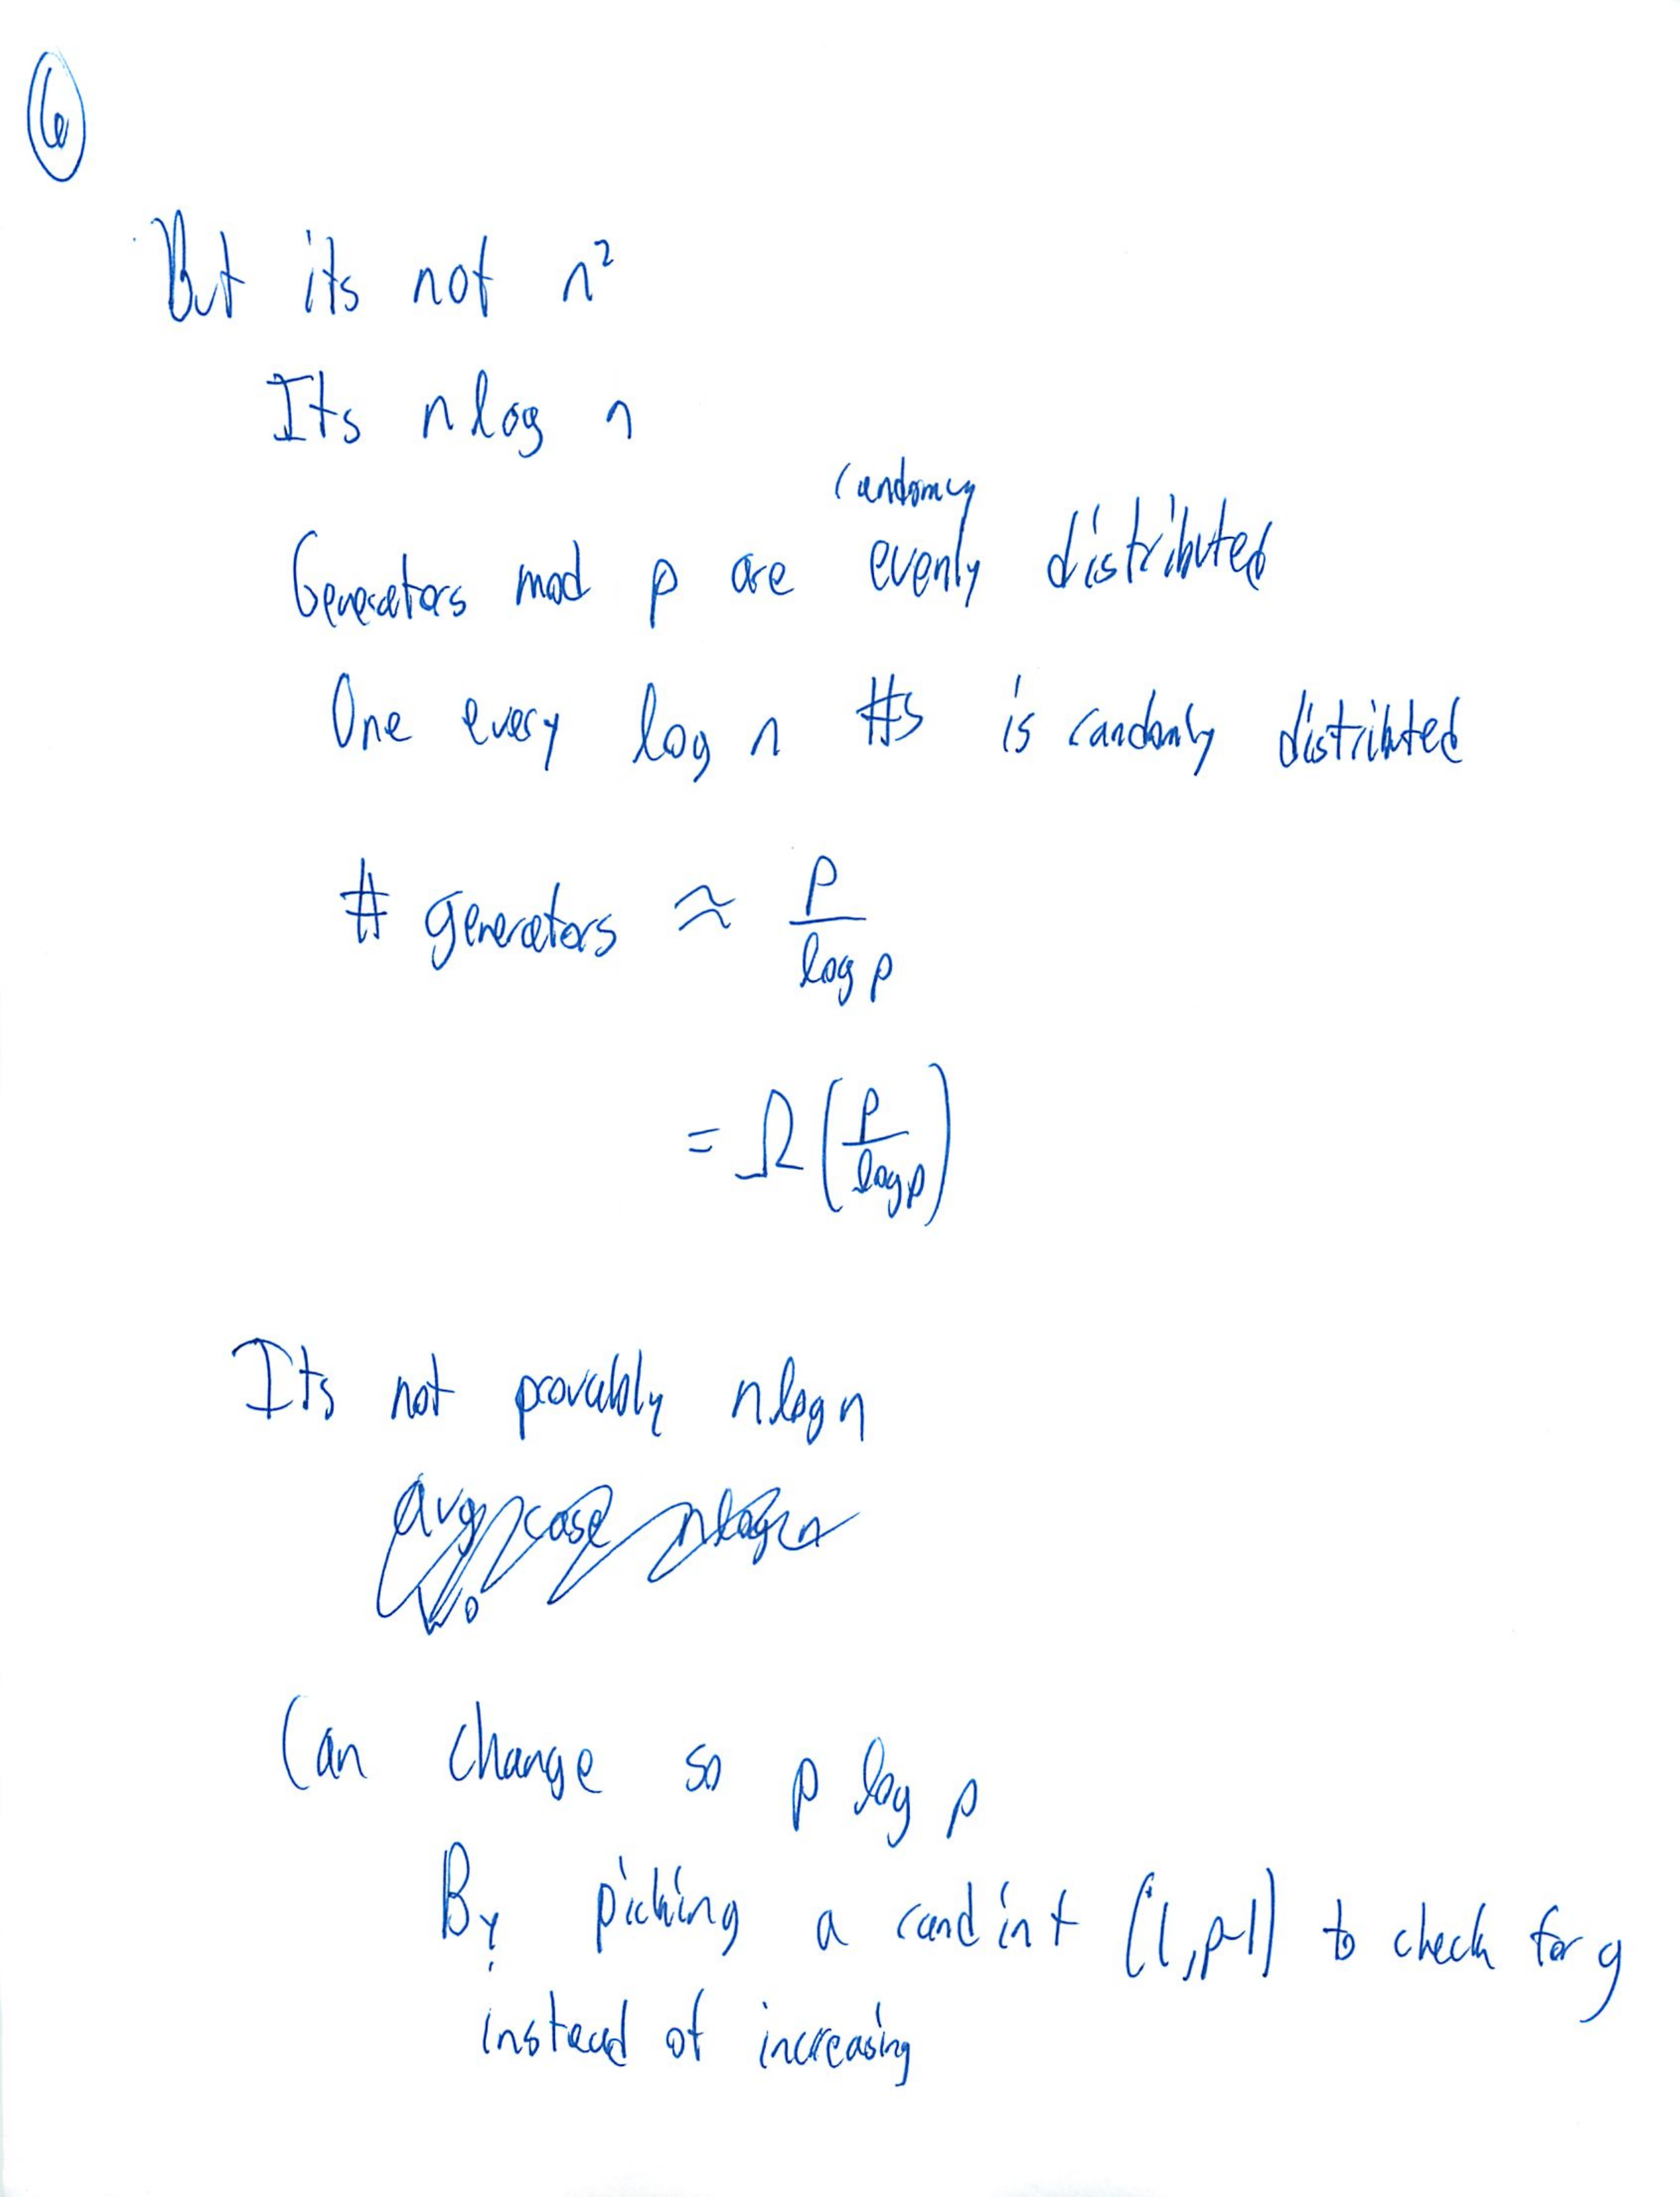 6
But its not n²
Its n log n
randomly
Generators mod p are evenly distributed
One every log n #s is randomly distributed
# generators ≈ p / log p
= Ω(p / log p)
Its not provably n log n
avg case n log n
Can change so p log p
By picking a rand int (1, p-1) to check for g
instead of increasing